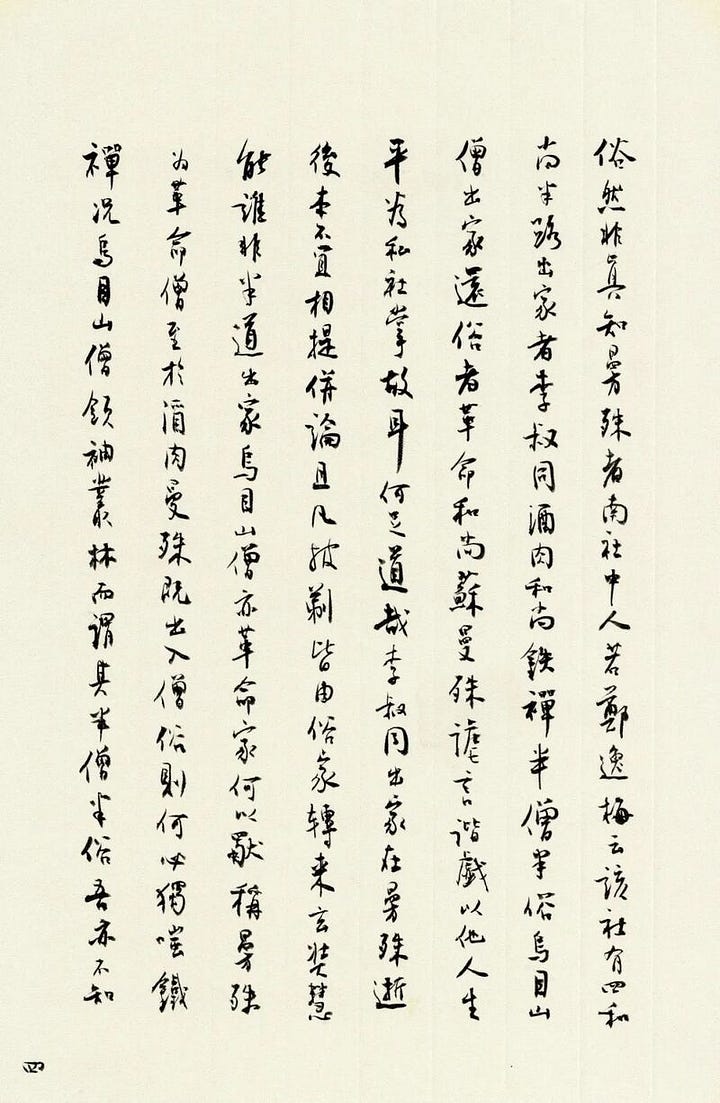 俗然非真知曼殊者南社中人若鄭逸梅云該社有四和
尚半路出家者李叔同酒肉和尚鐵禪半僧半俗烏目山
僧出家還俗者革命和尚蘇曼殊謔言諧戲以他人生
平為私社掌故耳何足道哉李叔同出家在曼殊逝
後本不宜相提併論且凡披剃皆由俗家轉来玄奘慧
能誰非半道出家烏目山僧亦革命家何以獨稱曼殊
為革命僧至於酒肉曼殊既出入僧俗則何必獨嗤鐵
禪況烏目山僧領袖叢林而謂其半僧半俗吾亦不知
四